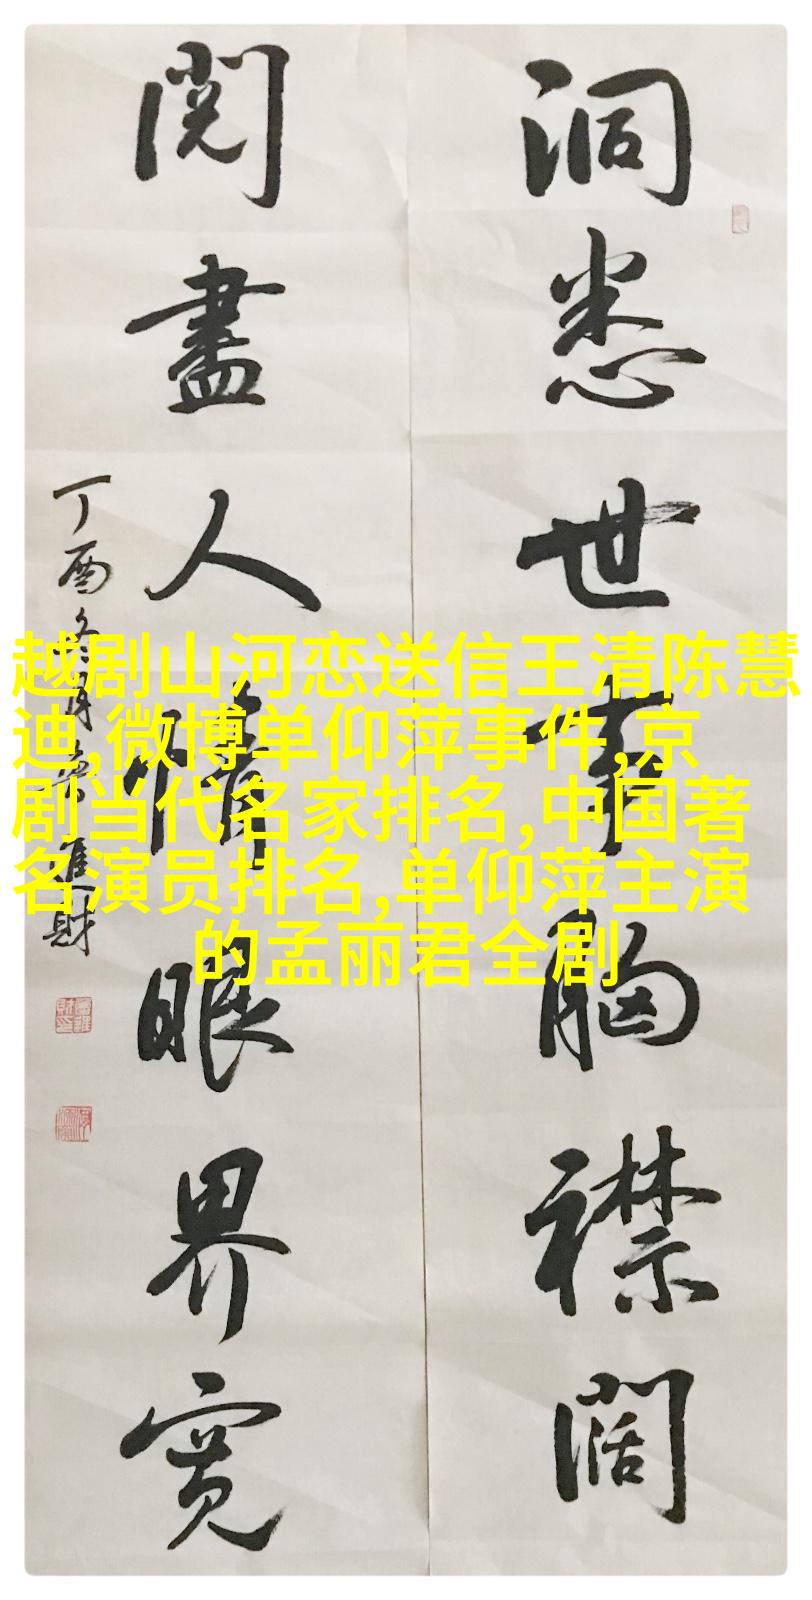 洞悉世事胸襟阔
閱盡人情眼界寬
丁酉冬月
進財
越剧山河恋送信王清陈慧
迪,微博单仰萍事件,京
剧当代名家排名,中国著
名演员排名,单仰萍主演
的孟丽君全剧